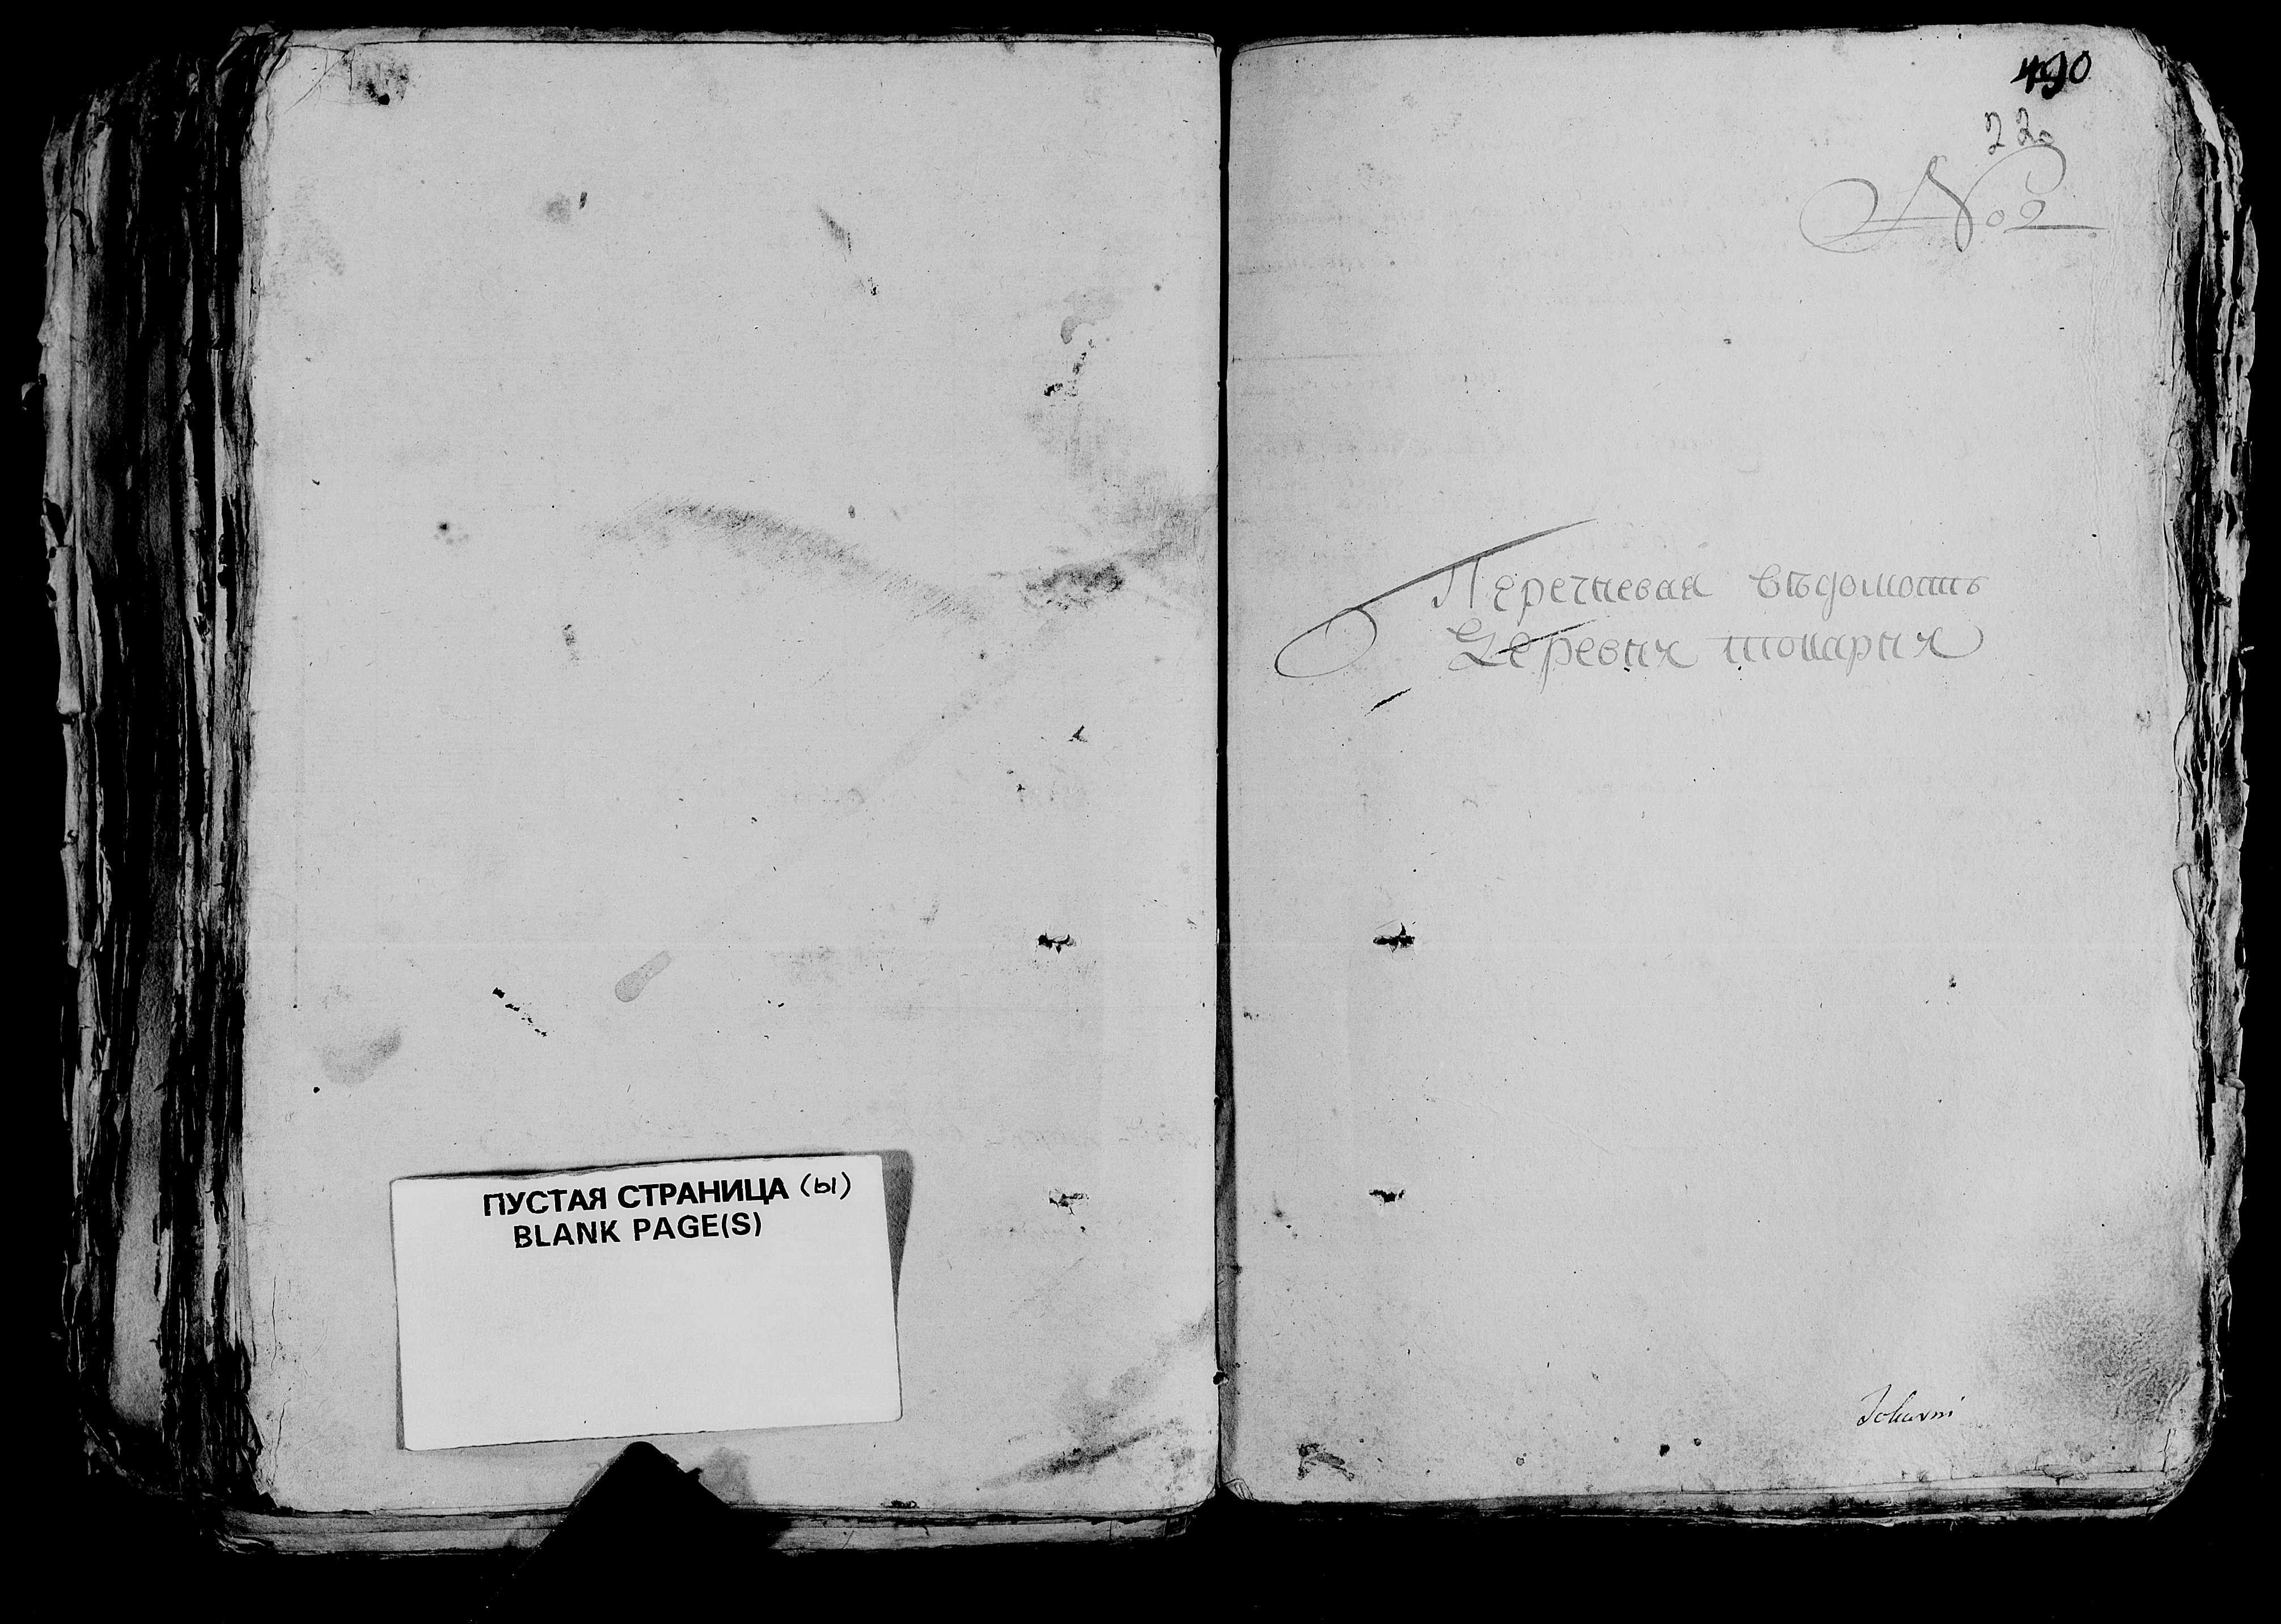 ПУСТАЯ СТРАНИЦА (Ы)
BLANK PAGE(S)
490
22
№ 2
Перечневая вѣдомость
Деревня токарня
Tokarni